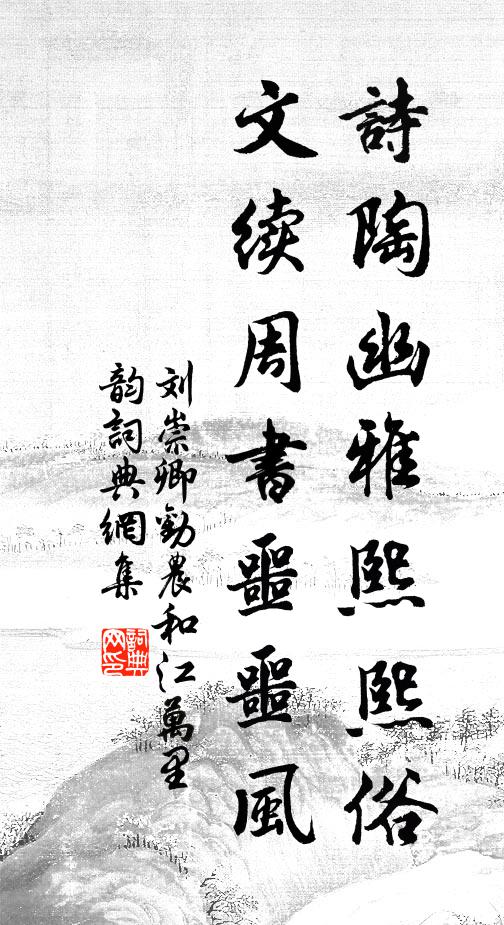 詩陶幽雅熙熙俗
文续周書噩噩風
刘崇卿勸農和江萬里
韵詞典網集
詞典网印